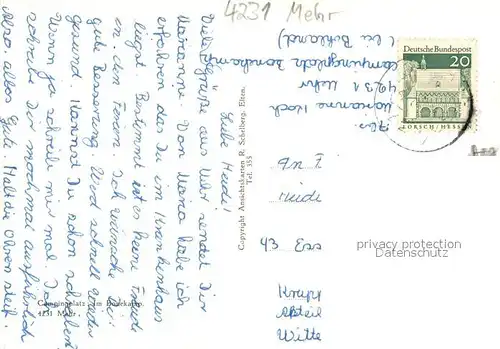 4231 Mehr
Liebe Heidi!
Viele Grüße aus Mehr sendet Dir
Marianne. Von Maria habe ich
erfahren das Du im Krankenhaus
liegst. Bestimmt ist es keine Freude
in den Ferien. Ich wünsche Dir
gute Besserung. Werd schnell wieder
gesund. Kannst Du schon schreiben?
Wenn ja schreib mir mal. Ich
schreibe Dir nochmal ausführlich.
Also, alles Gute. Halt die Ohren steif.
Campingplatz "Im Dünekamp"
4231 Mehr
Copyright Ansichtskarten R. Schelberg, Elten.
Tel. 355
Abs.
Marianne Koch
4231 Mehr
Campingplatz
Deutsche Bundespost
20
LORSCH/HESSEN
An
Heidi
43 Ess
Krupp
Abteil
Witte
privacy protection
Datenschutz